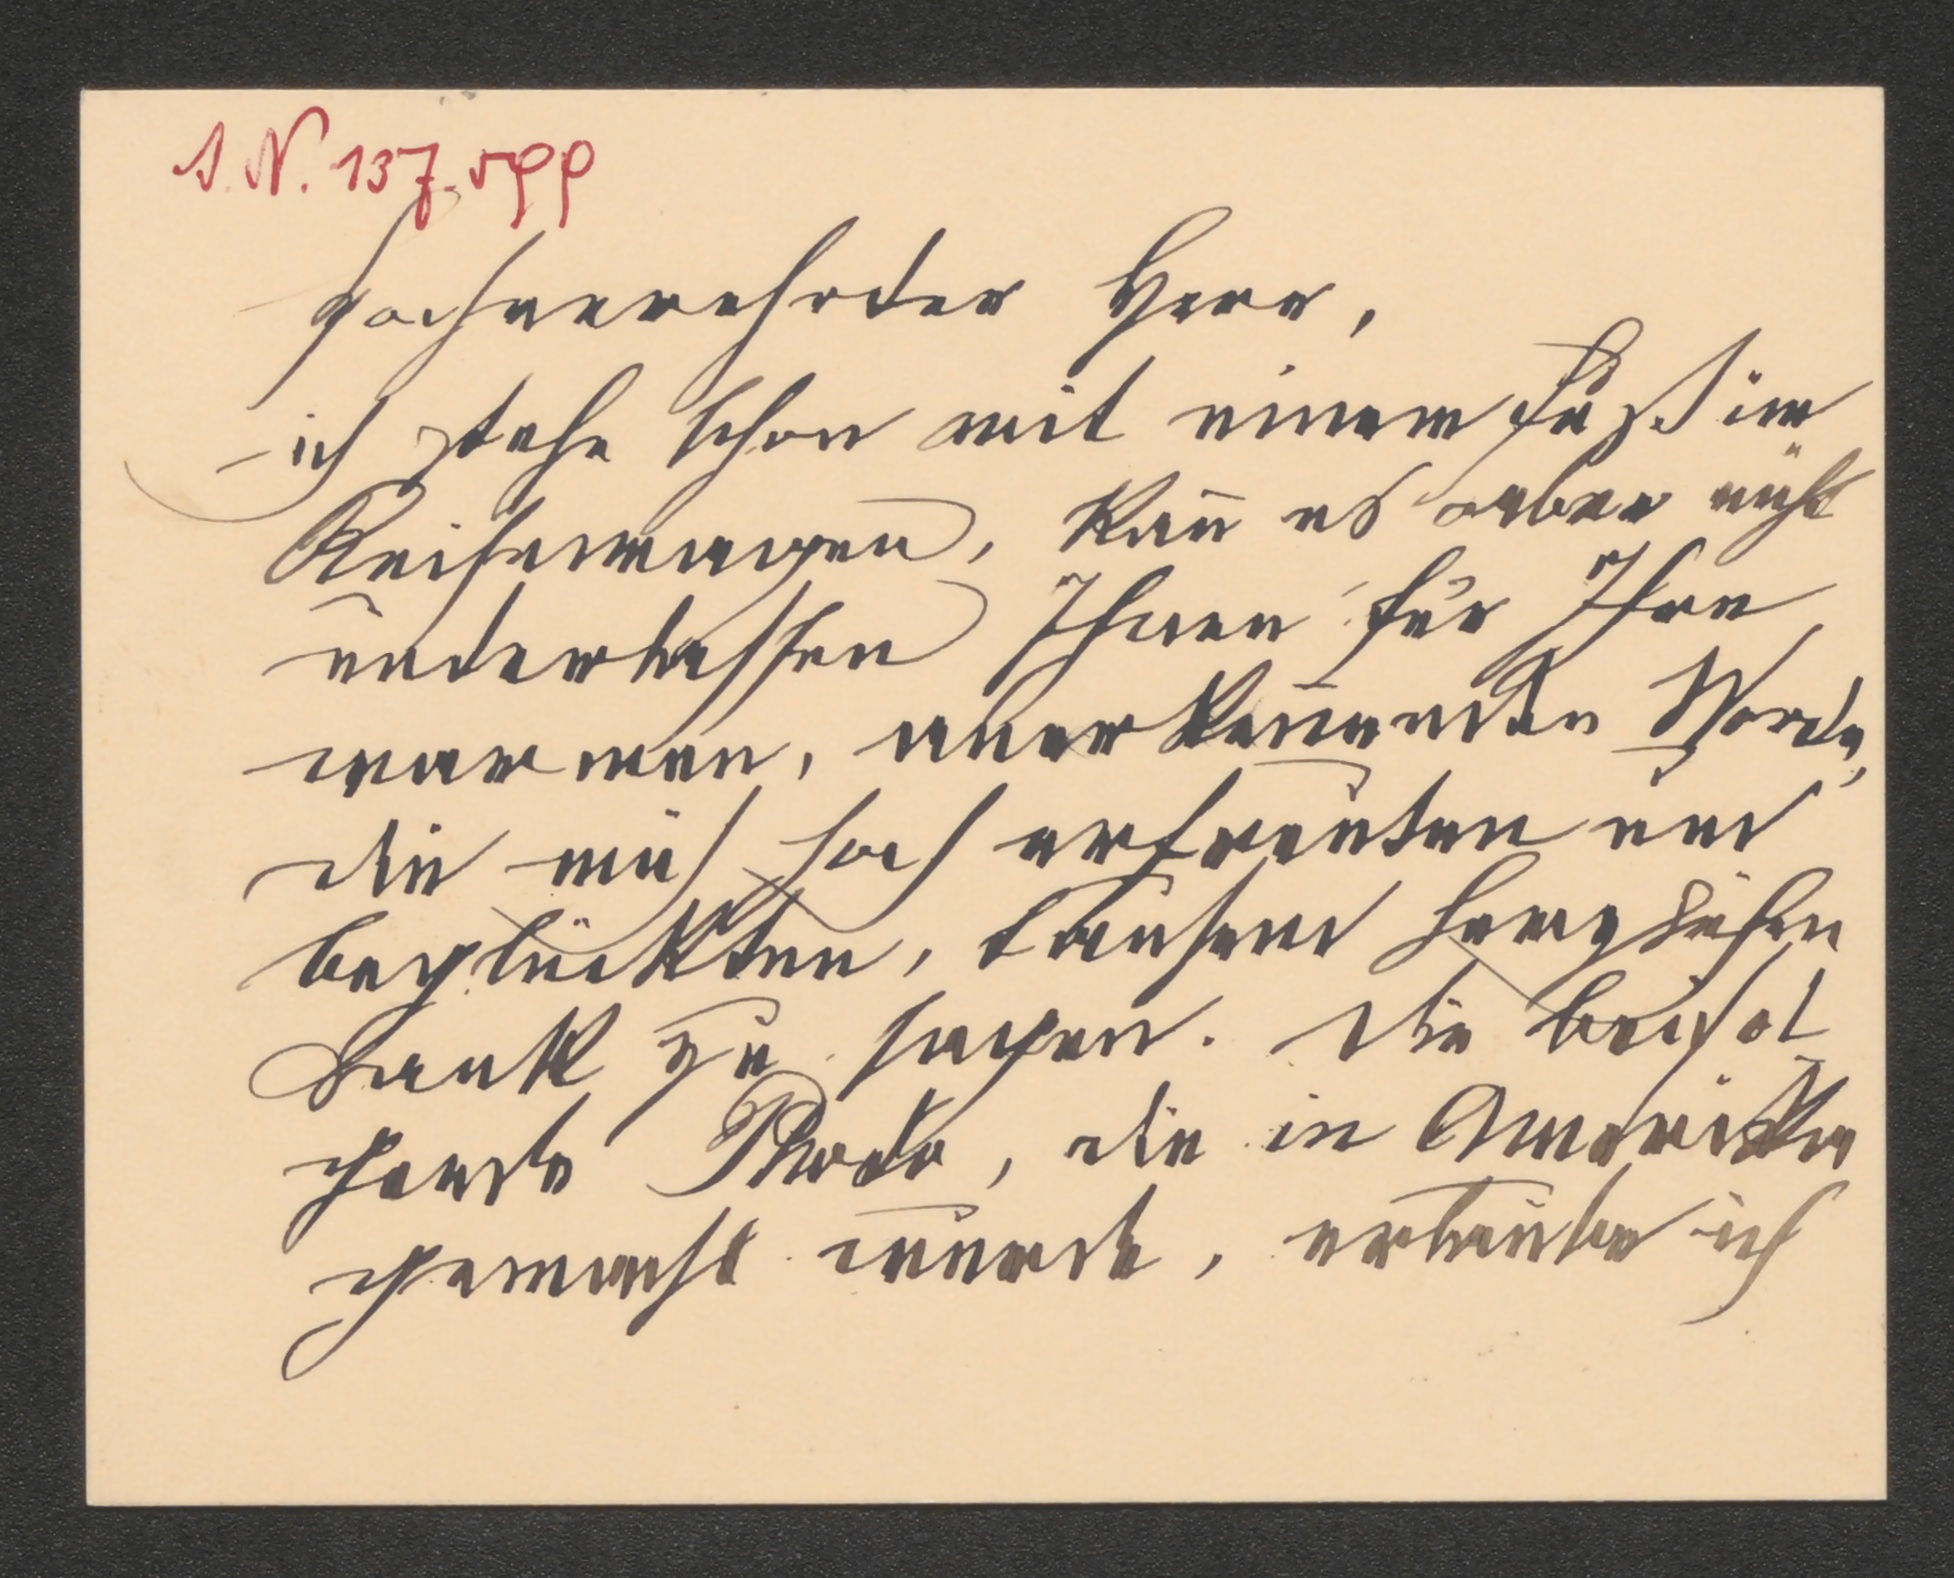 I. N. 137.
hochverehrter Herr,
ich stehe schon mit einem Fuß im
Reisewagen, kan̅ es aber nicht
unterlassen Ihnen für Ihre
warmen, anerken̅enden Worte,
die mich hoch erfreuten und
beglückten, tausend herzlichen
Dank zu sagen. Die beifol
gende Photo, die in Amerika
gemacht wurde, erlaube ich